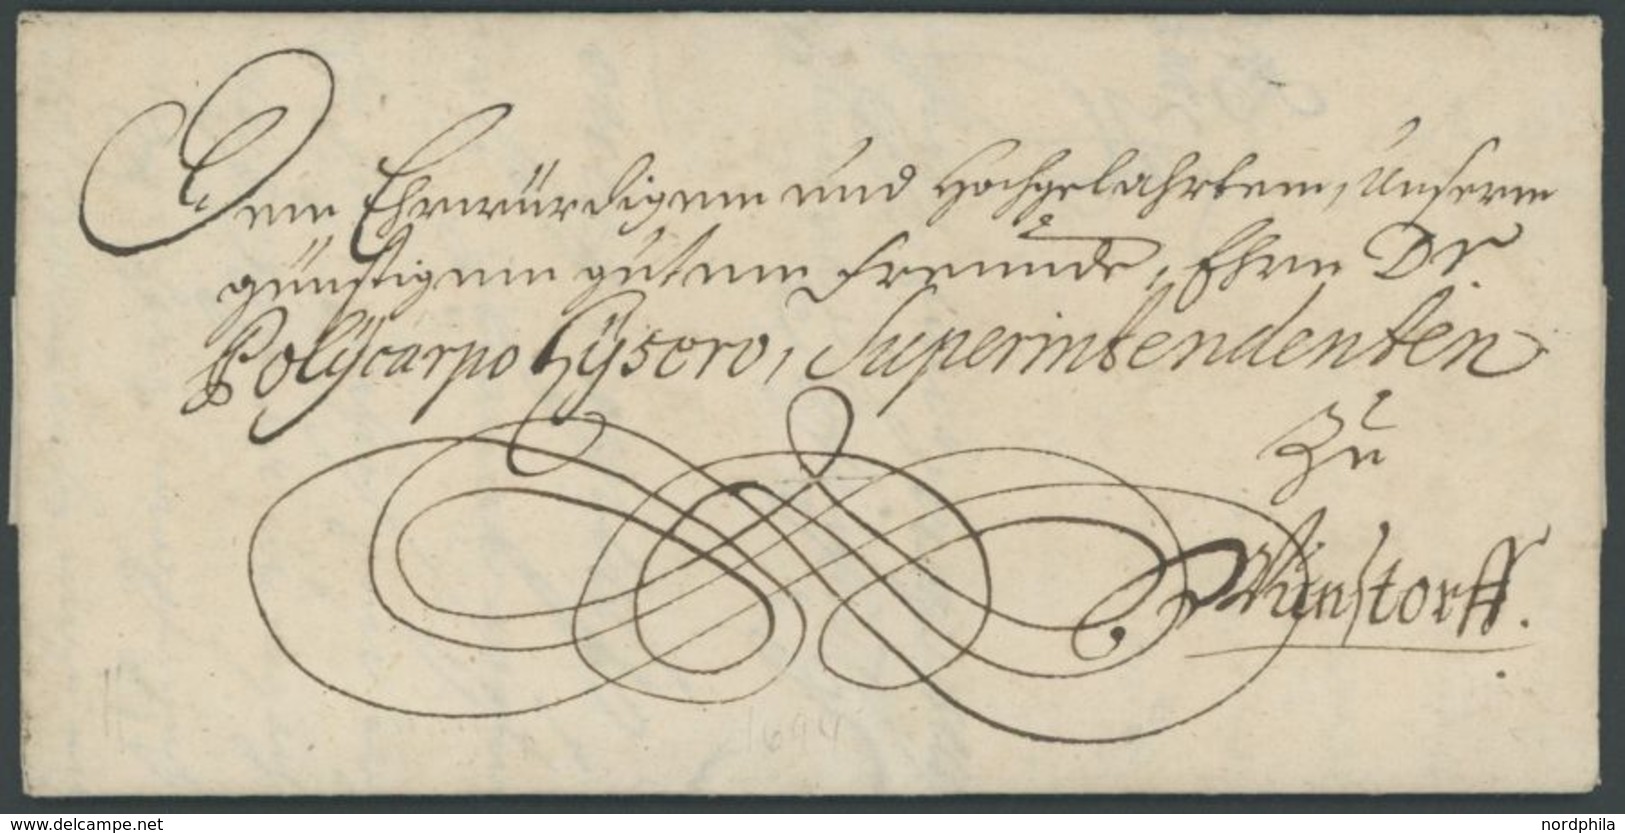 Dem Ehrwürdigem und Hochgelahrtem, Unserm
günstigem gutem Freunde, Ehrn Dr.
Polÿcarpo Lÿsero, Superintendenten
Zu
Wunstorff.
1694
www.delcampe.net
nordphila